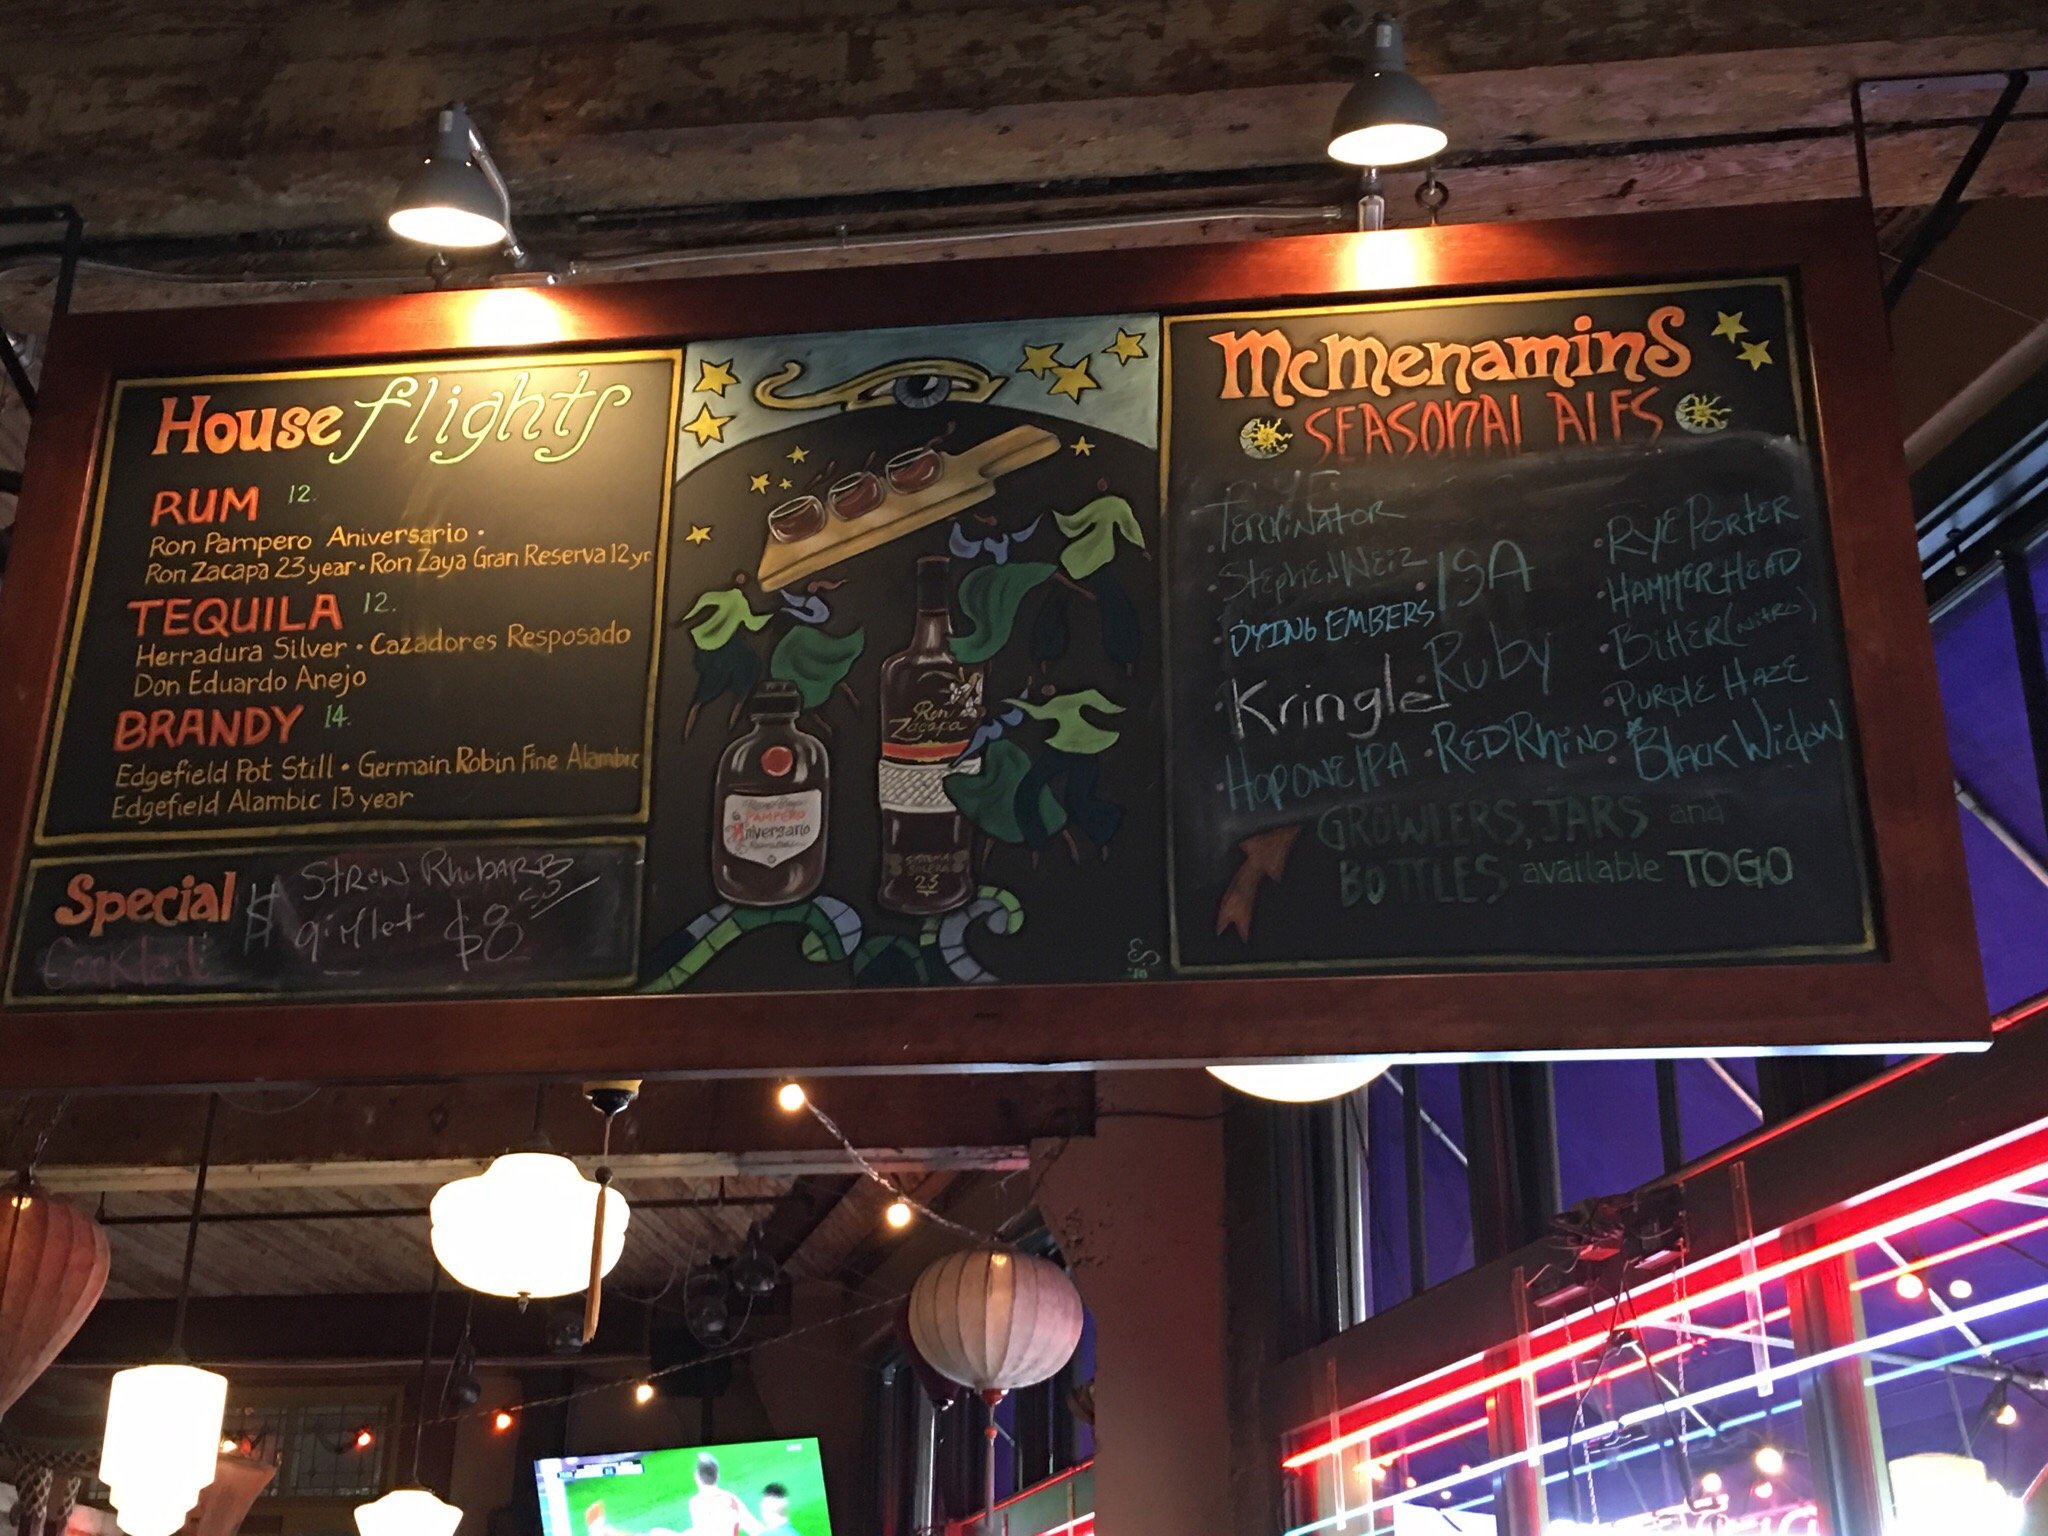 House flights
RUM 12.
Ron Pampero Aniversario •
Ron Zacapa 23 year • Ron Zaya Gran Reserva 12 yr
TEQUILA 12.
Herradura Silver • Cazadores Resposado
Don Eduardo Anejo
BRANDY 14.
Edgefield Pot Still • Germain Robin Fine Alambic
Edgefield Alambic 13 year
Special
Cocktail
Strew Rhubarb
gimlet $8.50
Ron
Zacapa
SISTEMA
SOLERA
23
PAMPERO
Aniversario
ES
McMenamins
SEASONAL ALES
• TERMINATOR
• StephenWeiz
• DYING EMBERS
• Kringle
• HOP ONE IPA
• ISA
• Ruby
• RED RhiNO
• RYE PORTER
• HAMMERHEAD
• BitteR (NitRO)
• PURPLE HAZE
* BLACK WidOW
GROWLERS, JARS and
BOTTLES available TOGO